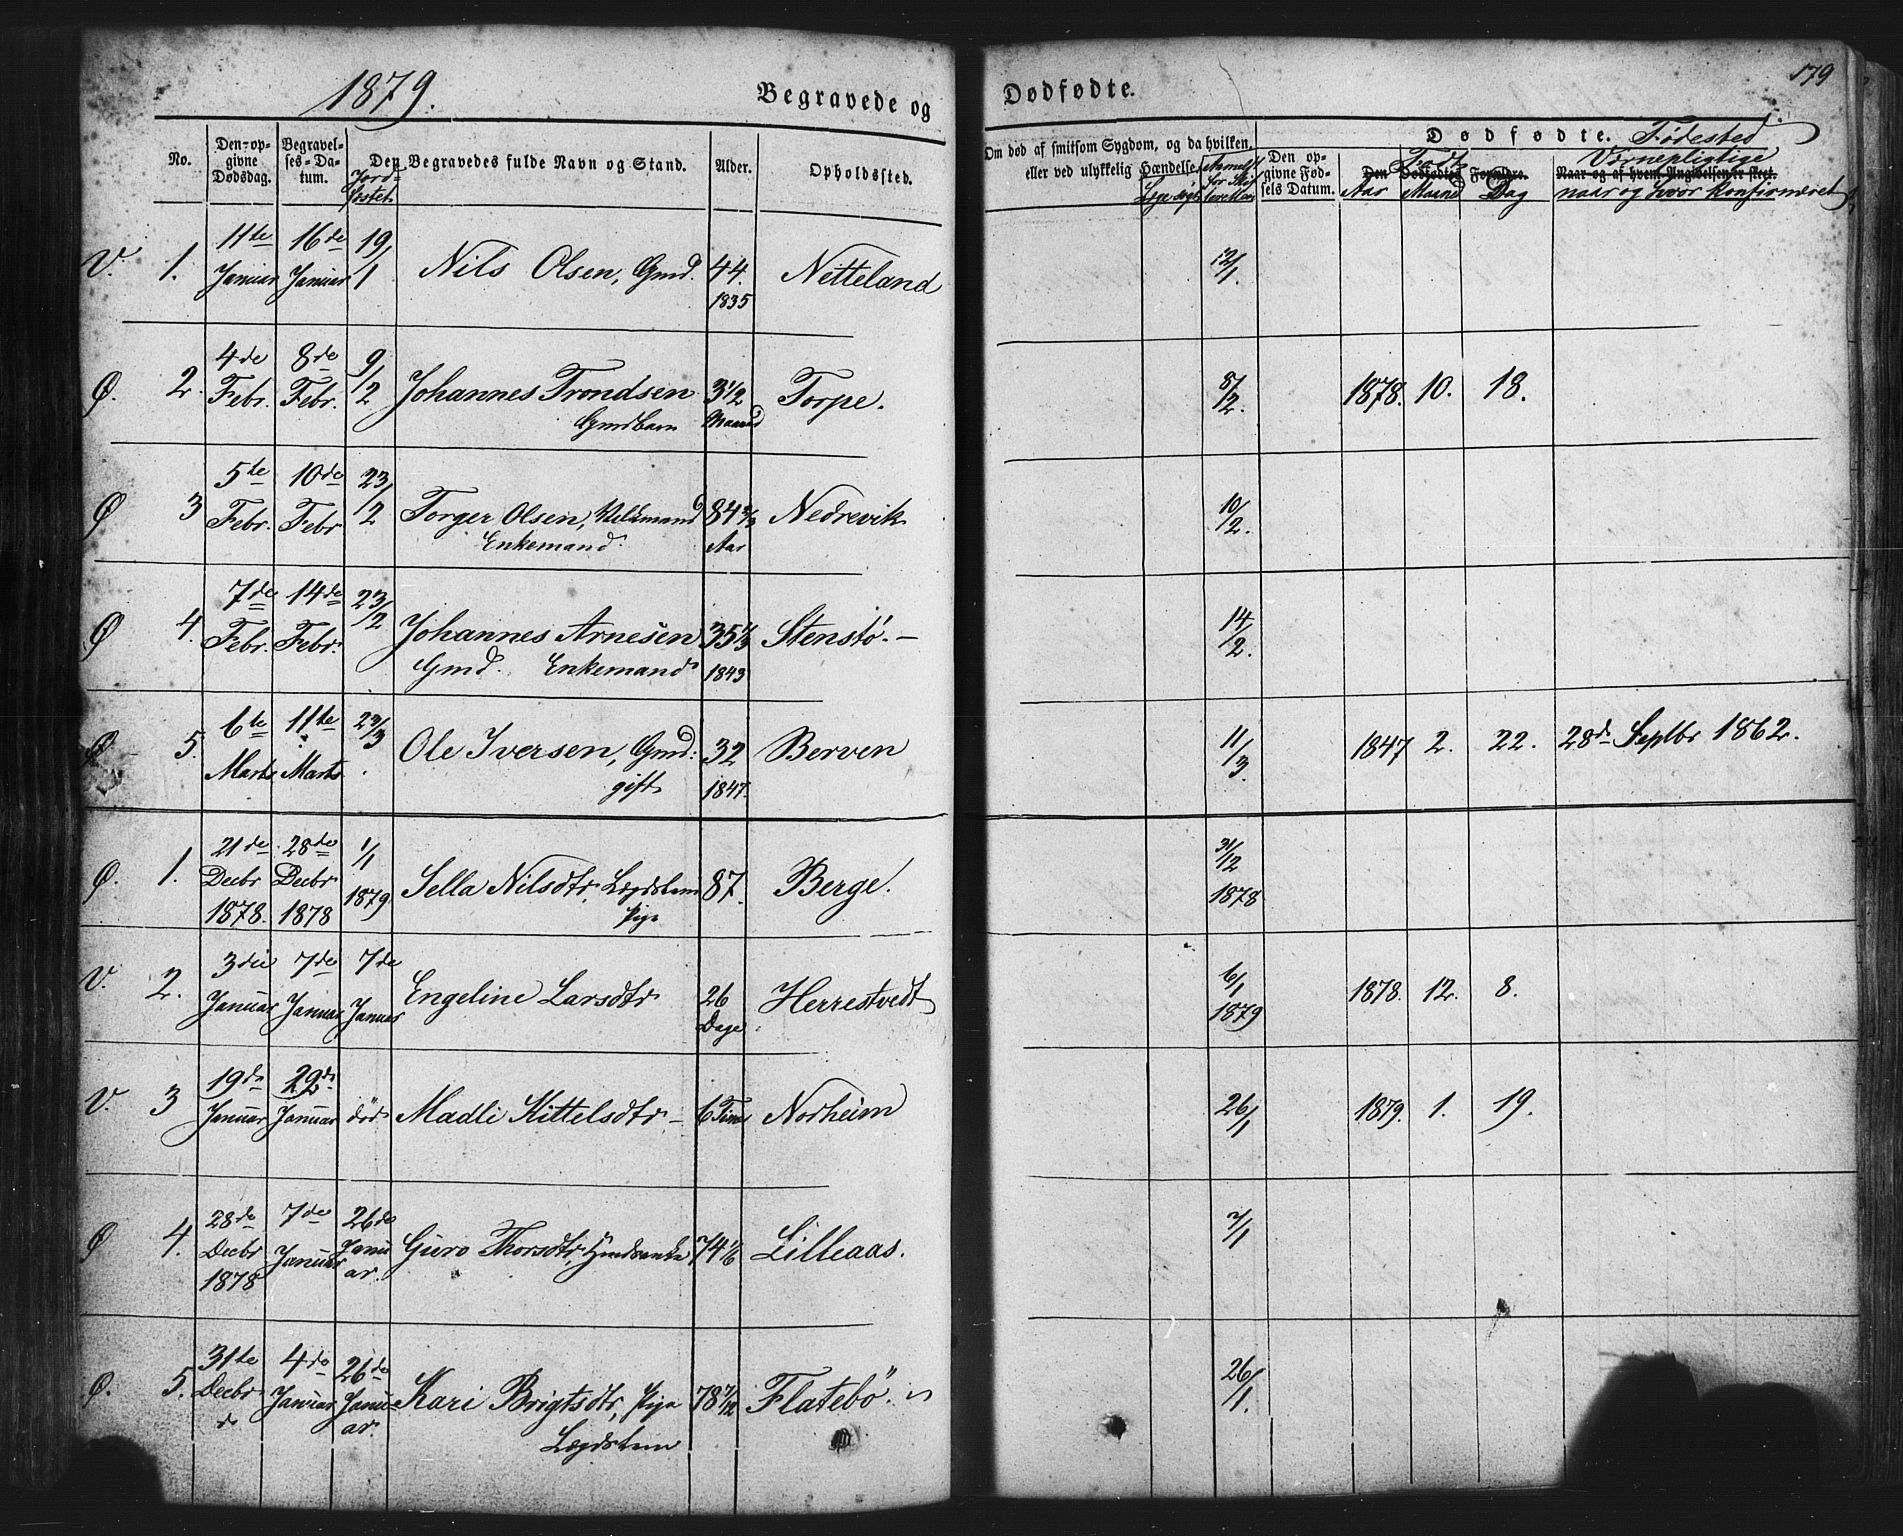 1879.
Begravede og
Dødfødte.
179
No.
Den op-
givne
Dødsdag.
Begravel-
ses-Da-
tum.
Jord-
fæstet
Den Begravedes fulde Navn og Stand.
Alder.
Opholdssted.
Om død af smitsom Sygdom, og da hvilken,
eller ved ulykkelig Hændelse.
Den op-
givne Fød-
sels Datum.
Dødfødte. Fødested
Den Dødfødtes Forældre.
Født
Aar Maaned Dag
Værnepligtige
Naar og af hvem Angivelsen er skeet.
naar og hvor Konfirmeret
V. 1. 11te Januar 16de Januar 19/1 Nils Olsen, Gmd. 44. 1835 Netteland 12/1.
Ø. 2. 4de Febr. 8de Febr. 9/2 Johannes Trondsen 3 1/2 Torpe. 8/2. 1878. 10. 18.
Gmdbarn Maaned
Ø 3 5te Febr. 10de Febr. 23/2 Torger Olsen, 84 Nedrevik 10/2.
Enkemand. Aar
Ø 4. 7de Febr. 14de Febr. 23/2 Johannes Arnesen 35 1/3 Stenstø. - 14/2.
Gmd. Enkemand 1843
Ø 5. 6te Marts 11te Marts 23/3 Ole Iversen, Gmd. 32 Berven 11/3. 1847 2. 22. 28de Septbr 1862.
gift 1847.
Ø. 1. 21de Decbr 1878. 28de Decbr 1878 1/1 1879 Sella Nilsdtr, Lægdslem 87. Berge. 31/12 1878
Pige
V. 2. 3die Januar 7de Januar 7de Januar Engeline Larsdtr 26 Dage Herrestvedt 6/1 1879 1878. 12. 8.
V. 3 19de Januar 29de Januar død Madli Kittelsdtr - 6 Timer Norheim 26/1 1879. 1. 19.
Ø 4. 28de Decbr 1878 7de Januar 26de Januar. Guro Thorsdtr, Gmdsenke 74 1/6 Lilleaas. 7/1
Ø. 5. 31te Decbr 4de Januar 26de Januar. Kari Brigtsdtr, Pige 78 7/12 Flatebø. 26/1.
Lægdslem